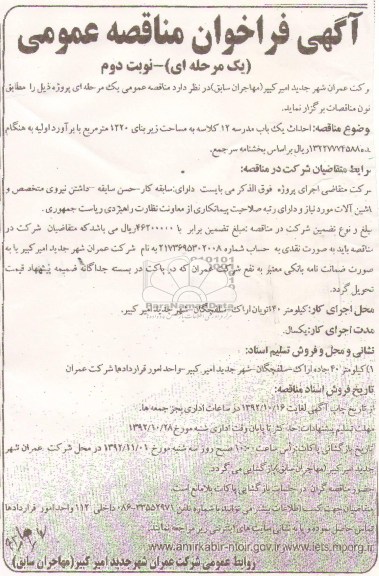 آگهی فراخوان مناقصه عمومی
(یک مرحله ای)-نوبت دوم
رکت عمران شهر جدید امیر کبیر (مهاجران سابق) در نظر دارد مناقصه عمومی یک مرحله ای پروژه ذیل را مطابق
نون مناقصات برگزار نماید.
وضوع مناقصه: احداث یک باب مدرسه ۱۲ کلاسه به مساحت زیر بنای ۱۲۲۰ مترمربع با برآورد اولیه به هنگام
ریال بر اساس بخشنامه سر جمع.
رایط متقاضیان شرکت در مناقصه:
رکت متقاضی اجرای پروژه فوق الذکر می بایست دارای: سابقه کار-حسن سابقه -داشتن نیروی متخصص و
اشین آلات مورد نیاز و دارای رتبه صلاحیت پیمانکاری از معاونت نظارت راهبردی ریاست جمهوری.
بلغ و نوع تضمین شرکت در مناقصه: مبلغ تضمین برابر با ۴۶۲۰۰۰۰۰۰ ریال می باشد که متقاضیان شرکت در
مناقصه باید به صورت نقدی به حساب شماره ۲۱۷۳۶۹۵۳۰۲۰۰۸ به نام شرکت عمران شهر جدید امیر کبیر یا به
صورت ضمانت نامه بانکی معتبر به نفع شرکت عمران که در پاکت در بسته جداگانه ضمیمه پیشنهاد قیمت
تحویل گردد.
محل اجرای کار: کیلومتر ۴۰ اتوبان اراک-سلفچگان-شهر جدید امیر کبیر.
مدت اجرای کار: یکسال.
نشانی و محل و فروش تسلیم اسناد:
۱) کیلومتر ۴۰ جاده اراک-سلفچگان-شهر جدید امیر کبیر-واحد امور قراردادها شرکت عمران
تاریخ فروش اسناد مناقصه:
از تاریخ چاپ آگهی لغایت ۱۳۹۲/۱۰/۱۶ در ساعات اداری بجز جمعه ها.
مهلت تسلیم پیشنهادات: حداکثر تا پایان وقت اداری شنبه مورخ ۱۳۹۲/۱۰/۲۸
تاریخ بازگشائی پاکات: راس ساعت ۱۰:۰۰ صبح روز سه شنبه مورخ ۱۳۹۲/۱۱/۰۱ در محل شرکت عمران شهر
جدید امیر کبیر (مهاجران سابق) بازگشایی می گردد.
حضور مناقصه گران در جلسات بازگشایی پاکات بلامانع است.
متقاضیان جهت کسب اطلاعات بیشتر می توانند با شماره تلفن ۳۳۵۵۲۹۷۱-۰۸۶ داخلی ۱۱۲ واحد امور قراردادها
تماس حاصل نموده و یا به نشانی سایت های اینترنتی زیر مراجعه نمایند.
www.amirkabir-ntoir.gov.ir www.iets.mporg.ir
روابط عمومی شرکت عمران شهر جدید امیر کبیر (مهاجران سابق)